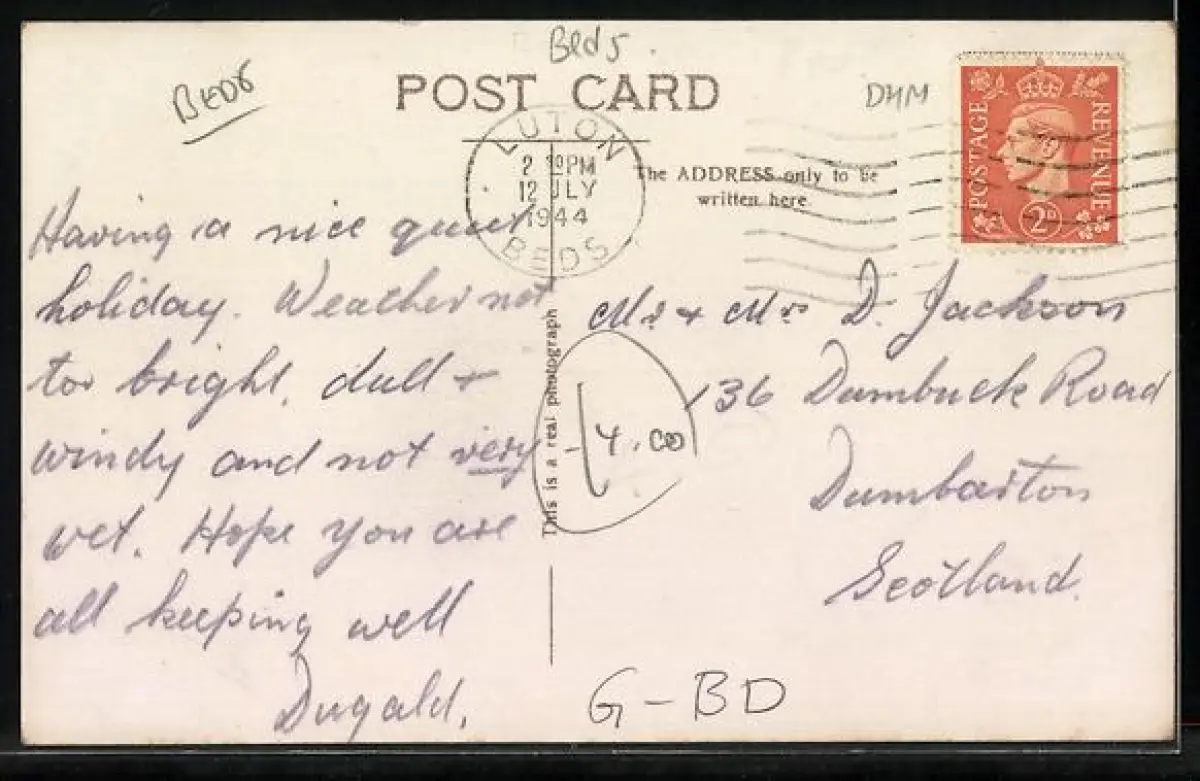 Beds.
BEDS
POST CARD
DHM
LUTON
2 30PM
12 JLY
1944
BEDS
The ADDRESS only to be
written here
POSTAGE
REVENUE
2D
Having a nice quiet
holiday. Weather not
too bright, dull +
windy and not very
wet. Hope you are
all keeping well
Dugald.
This is a real photograph
4.00
Mr + Mrs D. Jackson
136 Dumbuck Road
Dumbarton
Scotland.
G-BD